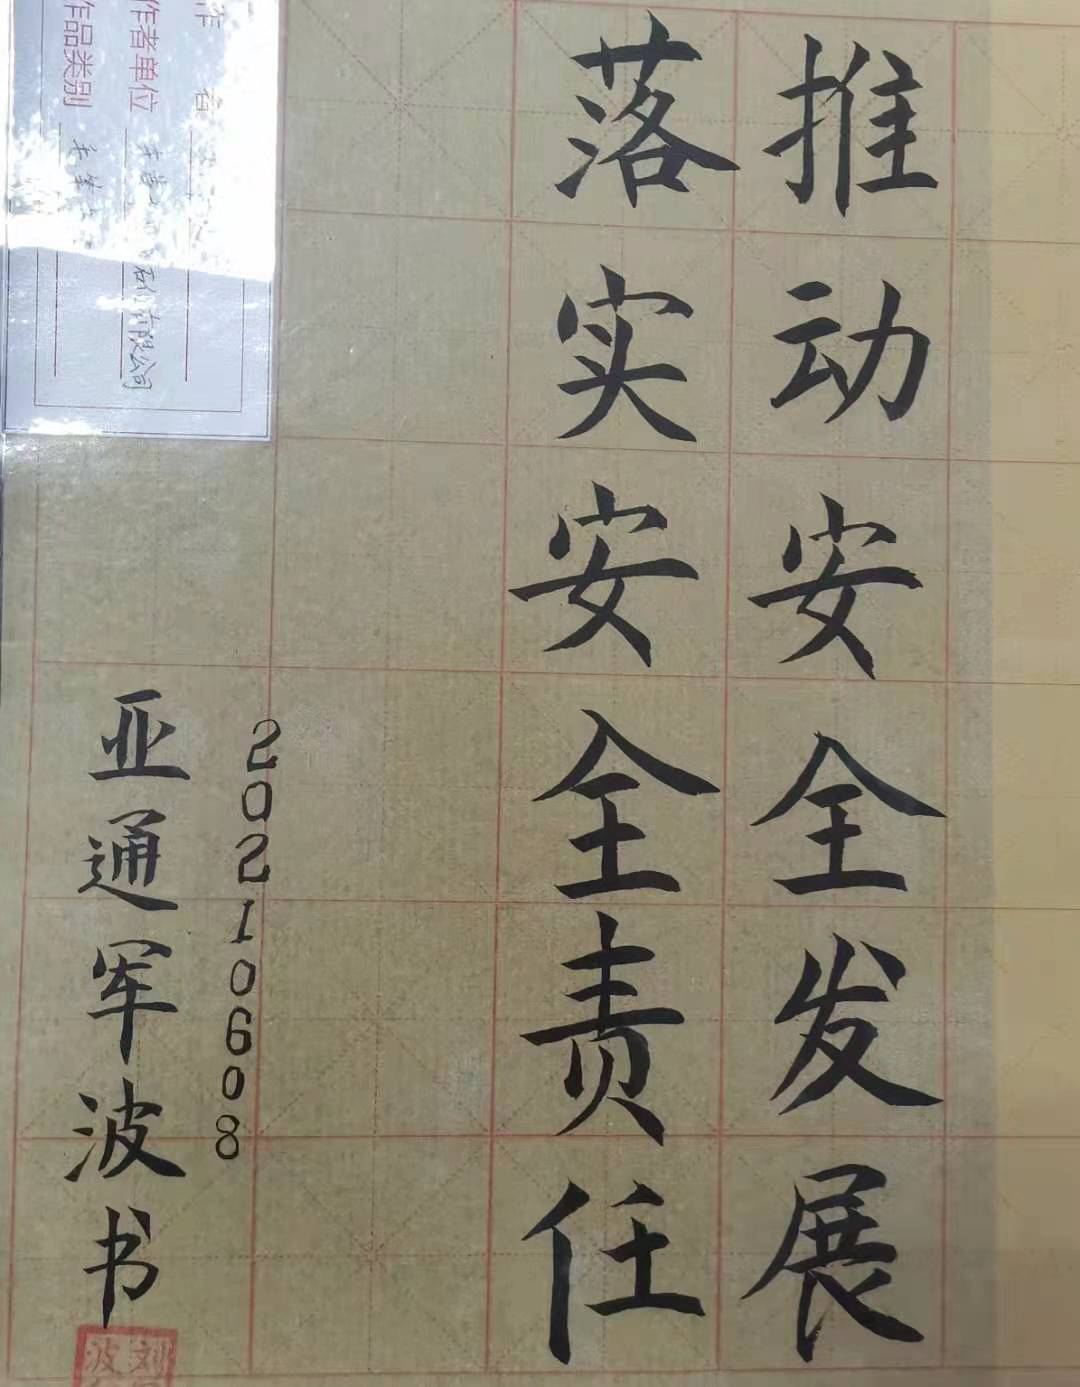 推动安全发展
落实安全责任
20210608
亚通军波书
刘
波
作者单位
作品类别
有限公司